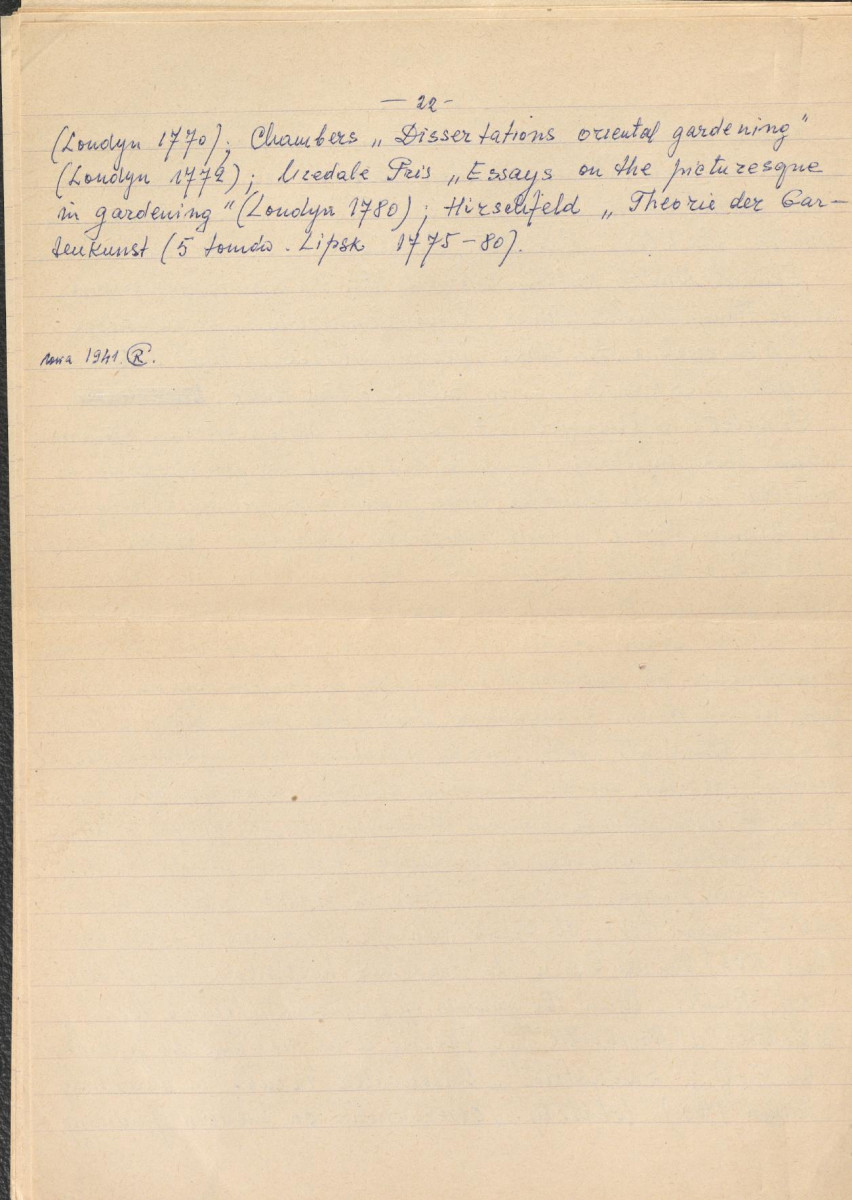 — 22 -
(Londyn 1770); Chambers „Dissertations oriental gardening"
(Londyn 1772); Uvedale Pris „Essays on the picturesque
in gardening" (Londyn 1780); Hirschfeld „Theorie der Gar-
tenkunst (5 tomów. Lipsk 1775-80).
1941 Ⓡ.